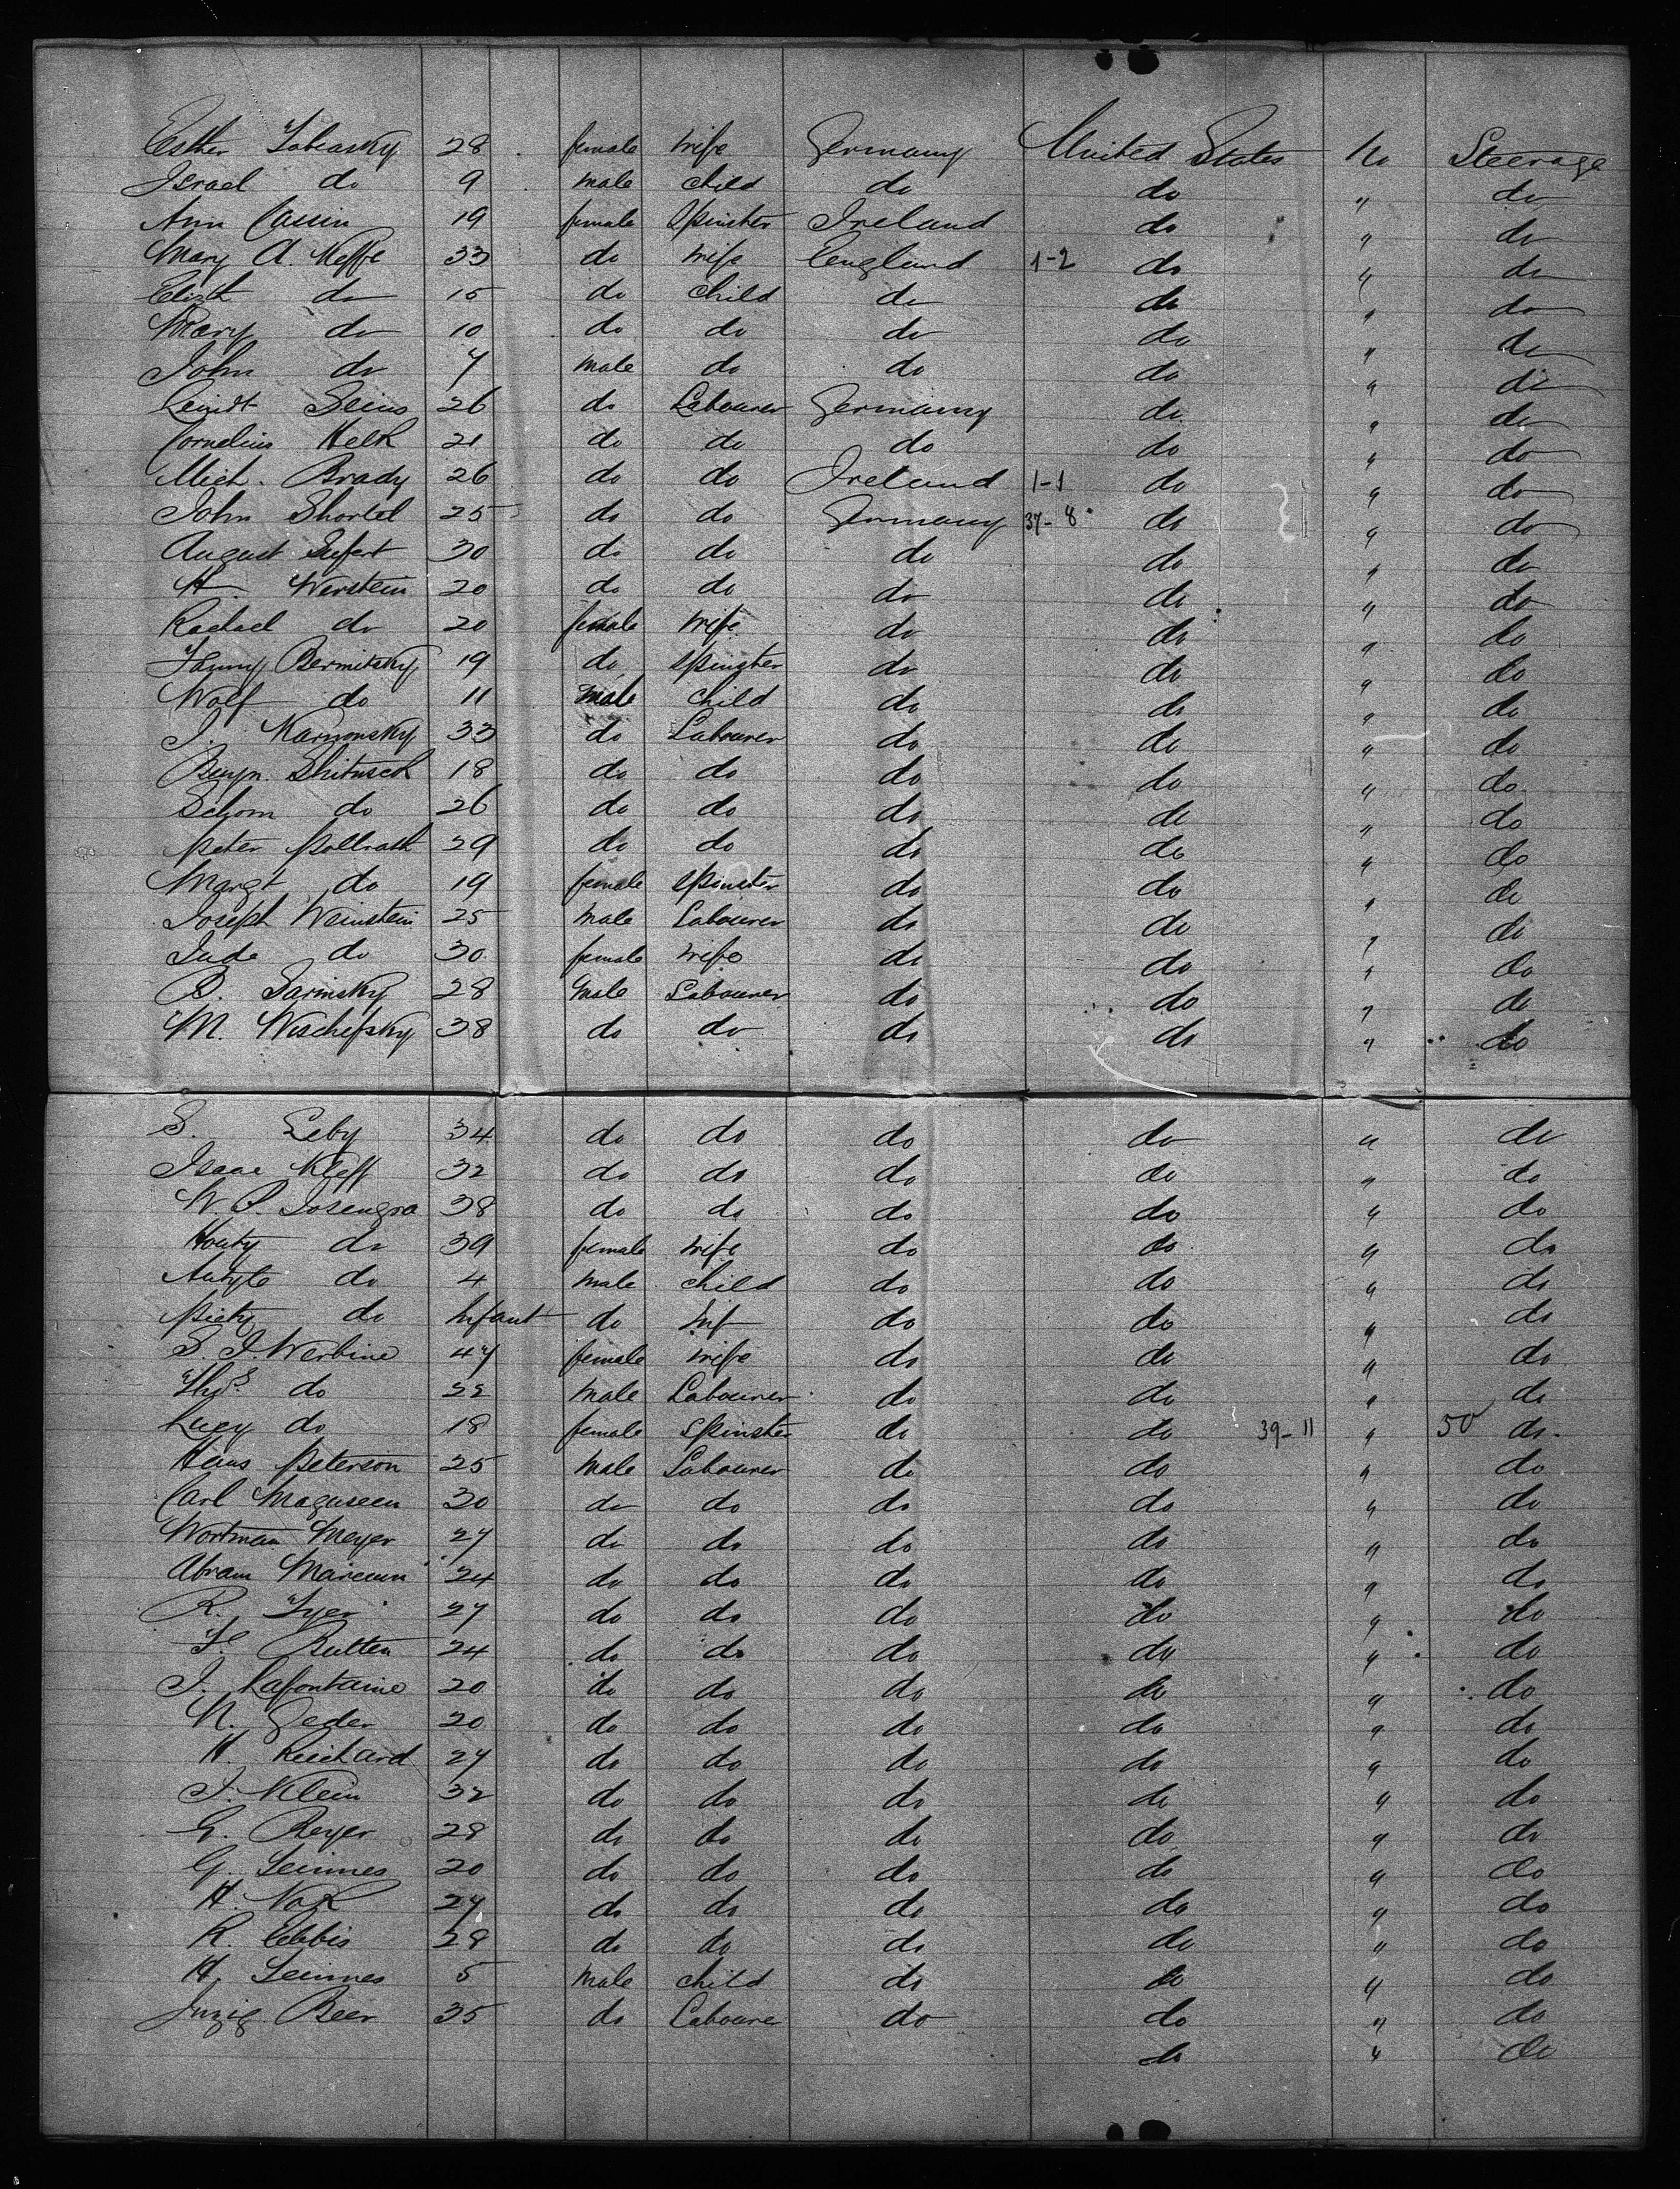 Esther Sobiasky 28 female wife Germany United States No Steerage
Israel do 9 male child do do " do
Ann 19 female Spinster Ireland do " do
Mary A. Keffe 33 do wife England 1-2 do " do
Elizth do 15 do child do do " do
Mary do 10 do do do do " do
John do 7 male do do do " do
26 do Labourer Germany do " do
Cornelius Helk 21 do do do do " do
Mich. Brady 26 do do Ireland 1-1 do " do
John Shortel 25 do do Germany 37-8 do " do
August Sufert 30 do do do do " do
H. Werstein 20 do do do do " do
Rachael do 20 female wife do do " do
Fanny Bermitsky 19 do spinster do do " do
Wolf do 11 male child do do " do
J. Karnonsky 33 do Labourer do do " do
Benjn. Shitusck 18 do do do do " do
Schom do 26 do do do do " do
Peter Pollrath 29 do do do do " do
Margt do 19 female spinster do do " do
Joseph Weinstein 25 male Labourer do do " do
Jude do 30 female wife do do " do
B. Sarinsky 28 male Labourer do do " do
M. Wischefsky 38 do do do do " do
S. Leby 34 do do do do " do
Isaac Kleff 32 do do do do " do
W. P. Sosengra 38 do do do do " do
Houty do 39 female wife do do " do
Autyte do 4 male child do do " do
Piety do Infant do Inf do do " do
S. J. Werbine 47 female wife do do " do
Thos. do 22 male Labourer do do " do
Lucy do 18 female Spinster do do 39-11 " 50 do
Hans Peterson 25 male Labourer do do " do
Carl Maguseen 30 do do do do " do
Wortman Meyer 27 do do do do " do
Abram Marcum 24 do do do do " do
R. Iyer 27 do do do do " do
F. Butten 24 do do do do " do
J. Lafontaine 20 do do do do " do
N. Geder 20 do do do do " do
H. Reichard 27 do do do do " do
J. Klein 32 do do do do " do
G. Reyer 28 do do do do " do
G. Leinnes 20 do do do do " do
H. Nok 27 do do do do " do
R. Ebbis 28 do do do do " do
H. Leinnes 5 male child do do " do
Junzig Beer 35 do Laboure do do " do
do " do